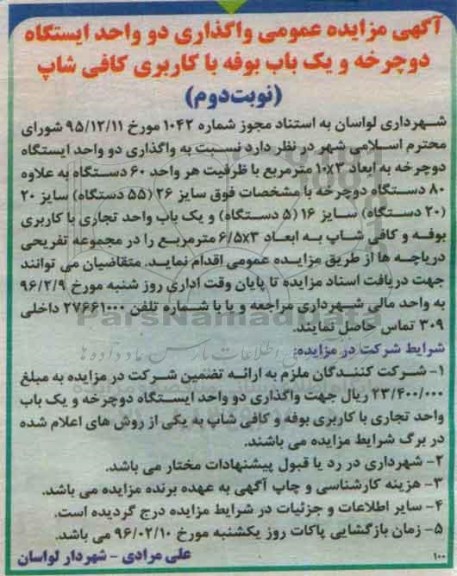 آگهی مزایده عمومی واگذاری دو واحد ایستگاه
دوچرخه و یک باب بوفه با کاربری کافی شاپ
(نوبت دوم)
شهرداری لواسان به استناد مجوز شماره ۱۰۴۲ مورخ ۹۵/۱۲/۱۱ شورای
محترم اسلامی شهر در نظر دارد نسبت به واگذاری دو واحد ایستگاه
دوچرخه به ابعاد ۱۰x۳ مترمربع با ظرفیت هر واحد ۶۰ دستگاه به علاوه
۸۰ دستگاه دوچرخه با مشخصات فوق سایز ۲۶ (۵۵ دستگاه) سایز ۲۰
(۲۰ دستگاه) سایز ۱۶ (۵ دستگاه) و یک باب واحد تجاری با کاربری
بوفه و کافی شاپ به ابعاد ۶/۵x۳ مترمربع را در مجموعه تفریحی
دریاچه ها از طریق مزایده عمومی اقدام نماید. متقاضیان می توانند
جهت دریافت اسناد مزایده تا پایان وقت اداری روز شنبه مورخ ۹۶/۲/۹
به واحد مالی شهرداری مراجعه و یا با شماره تلفن ۲۷۶۶۱۰۰۰ داخلی
۳۰۹ تماس حاصل نمایند.
ParsNamadData
شرایط شرکت در مزایده:
۱- شرکت کنندگان ملزم به ارائه تضمین شرکت در مزایده به مبلغ
۲۳/۴۰۰/۰۰۰ ریال جهت واگذاری دو واحد ایستگاه دوچرخه و یک باب
واحد تجاری با کاربری بوفه و کافی شاپ به یکی از روش های اعلام شده
در برگ شرایط مزایده می باشند.
۲- شهرداری در رد یا قبول پیشنهادات مختار می باشد.
۳- هزینه کارشناسی و چاپ آگهی به عهده برنده مزایده می باشد.
۴- سایر اطلاعات و جزئیات در شرایط مزایده درج گردیده است.
۵- زمان بازگشایی پاکات روز یکشنبه مورخ ۹۶/۰۲/۱۰ می باشد.
علی مرادی - شهردار لواسان
۱۰۰